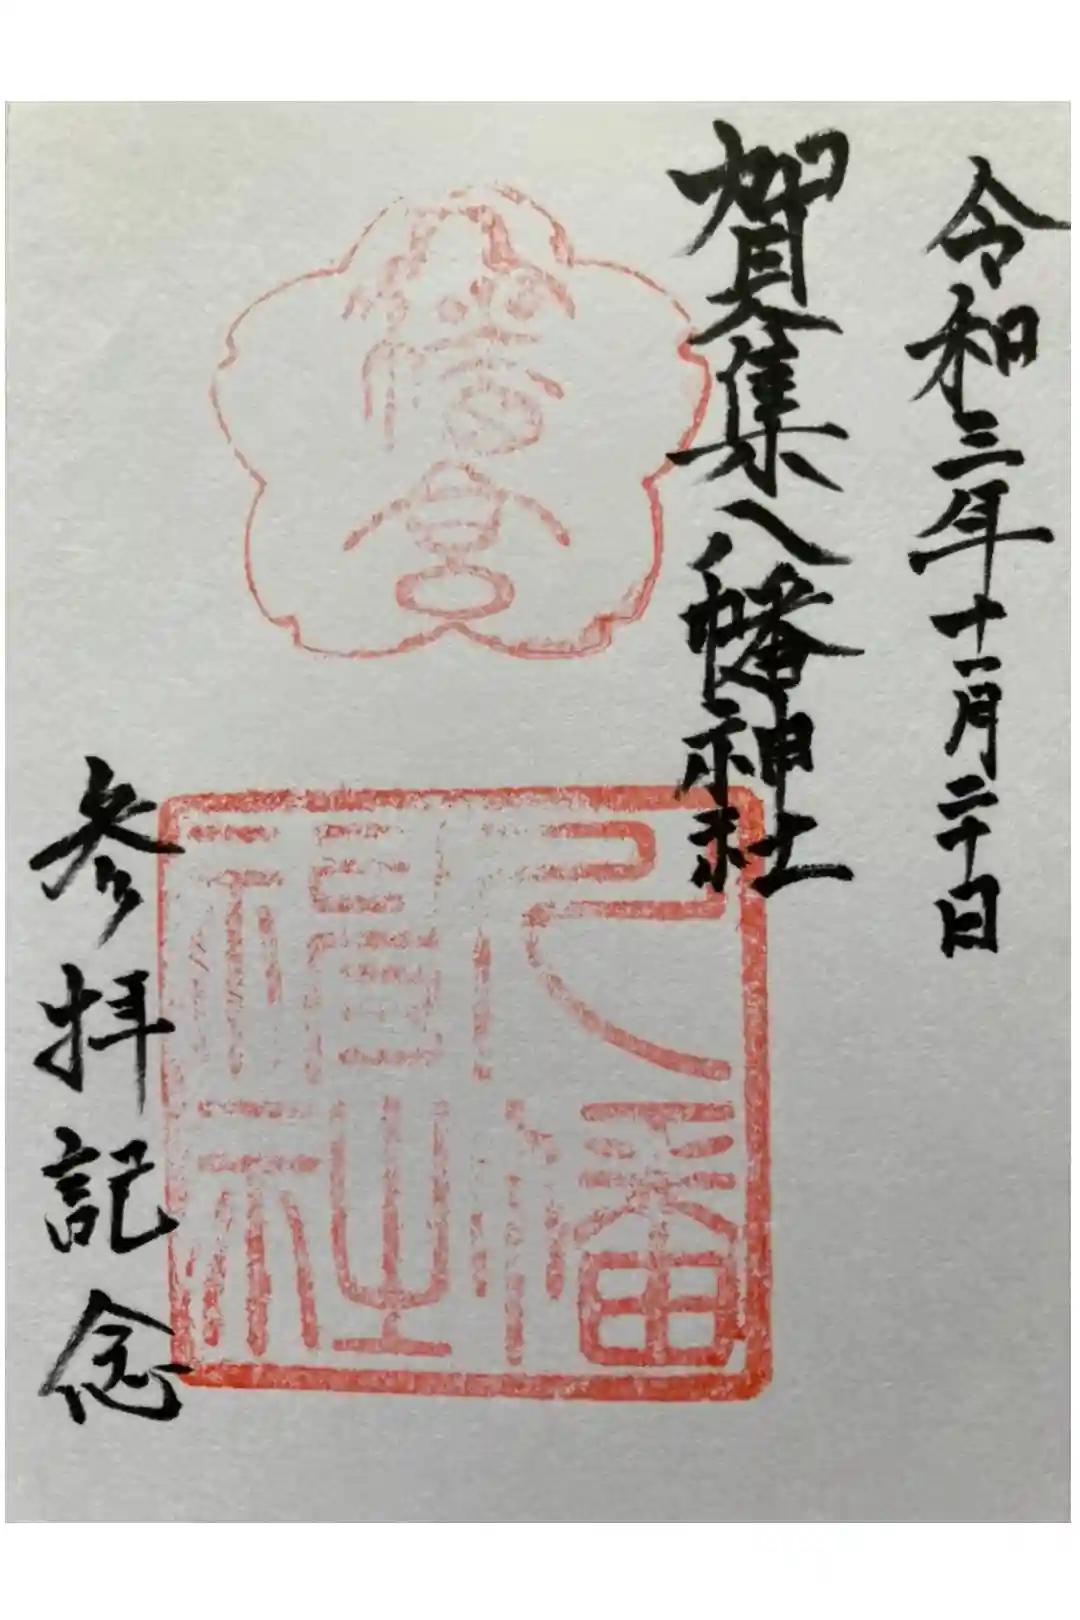 令和三年十一月二十日
賀集八幡神社
八幡
神社
参拝記念